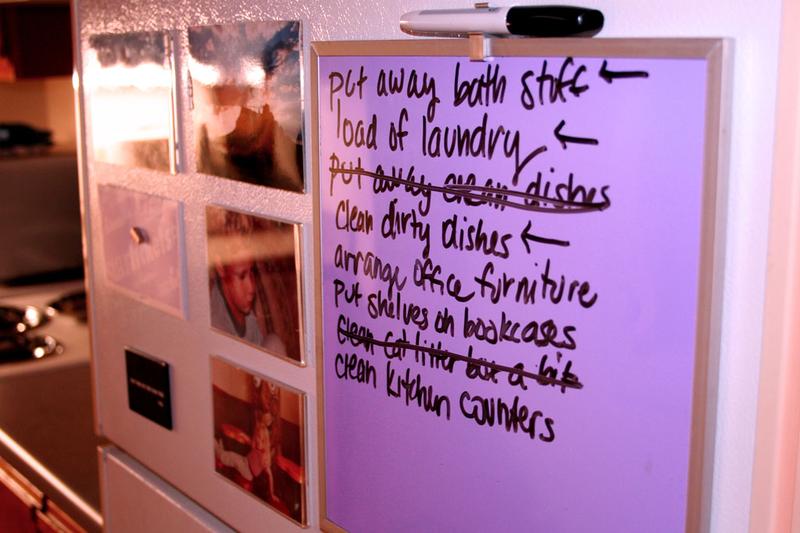 put away bath stuff ←
load of laundry ←
put away clean dishes
clean dirty dishes ←
arrange office furniture
put shelves on bookcases
clean cat litter box a bit
clean kitchen counters